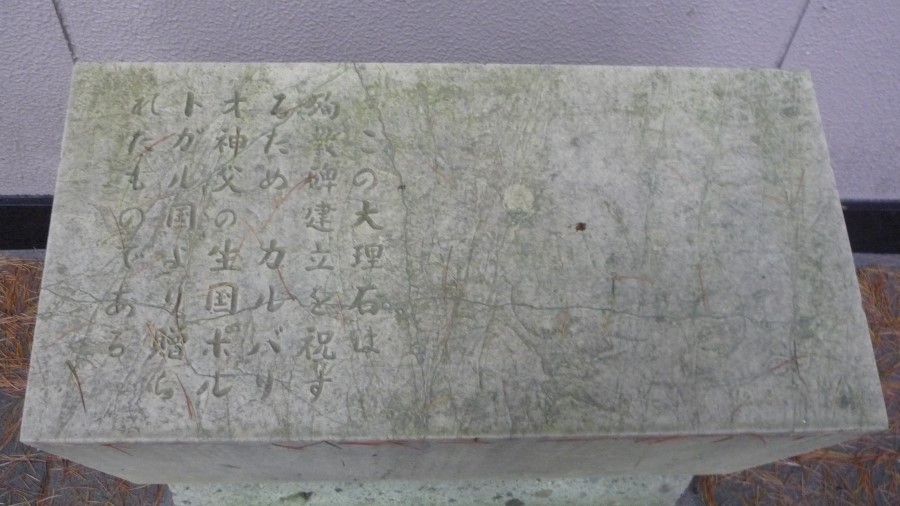 この大理石は
殉教碑建立を祝す
るため カルバリ
オ神父の生国ポル
トガル国より贈ら
れたものである